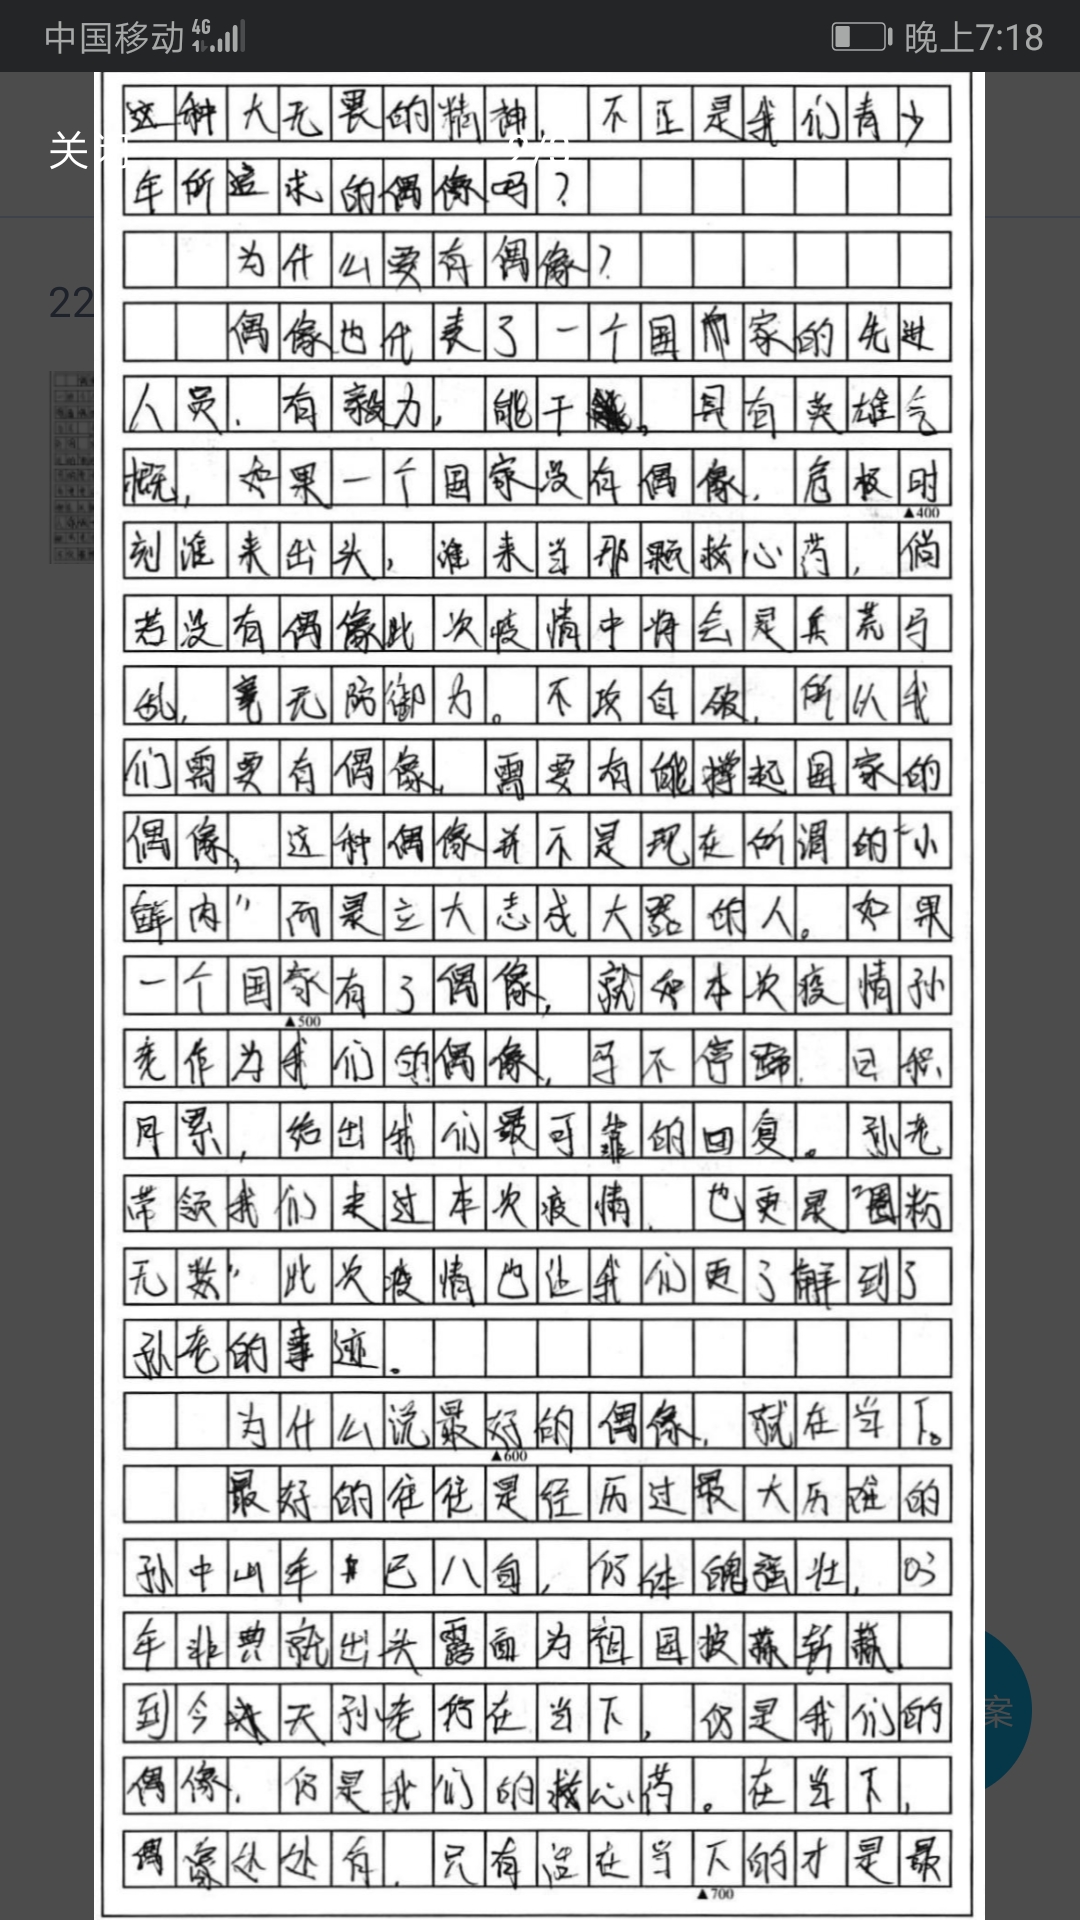 中国移动 4G 晚上7:18
关闭
这种大无畏的精神，不正是我们青少
年所追求的偶像吗？
为什么要有偶像？
22
偶像也代表了一个国家的先进
人员．有毅力，能干，具有英雄气
概，如果一个国家没有偶像．危极时
▲400
刻谁来出头，谁来当那颗救心药，倘
若没有偶像此次疫情中将会是兵荒马
乱，毫无防御力。不攻自破，所以我
们需要有偶像，需要有能撑起国家的
偶像，这种偶像并不是现在所谓的“小
鲜肉”而是立大志成大器的人。如果
一个国家有了偶像，就如本次疫情孙
▲500
老作为我们的偶像，马不停蹄．日积
月累，给出我们最可靠的回复。孙老
带领我们走过本次疫情．也更是“圈粉
无数”此次疫情也让我们更了解到了
孙老的事迹．
为什么说最好的偶像．就在当下。
▲600
最好的往往是经历过最大历难的
孙中山年已八旬，仍体魄强壮，03
年非典就出头露面为祖国披荆斩棘．
到今天孙老仍在当下，仍是我们的
案
偶像．仍是我们的救心药。在当下，
偶像处处有．只有活在当下的才是最
▲700